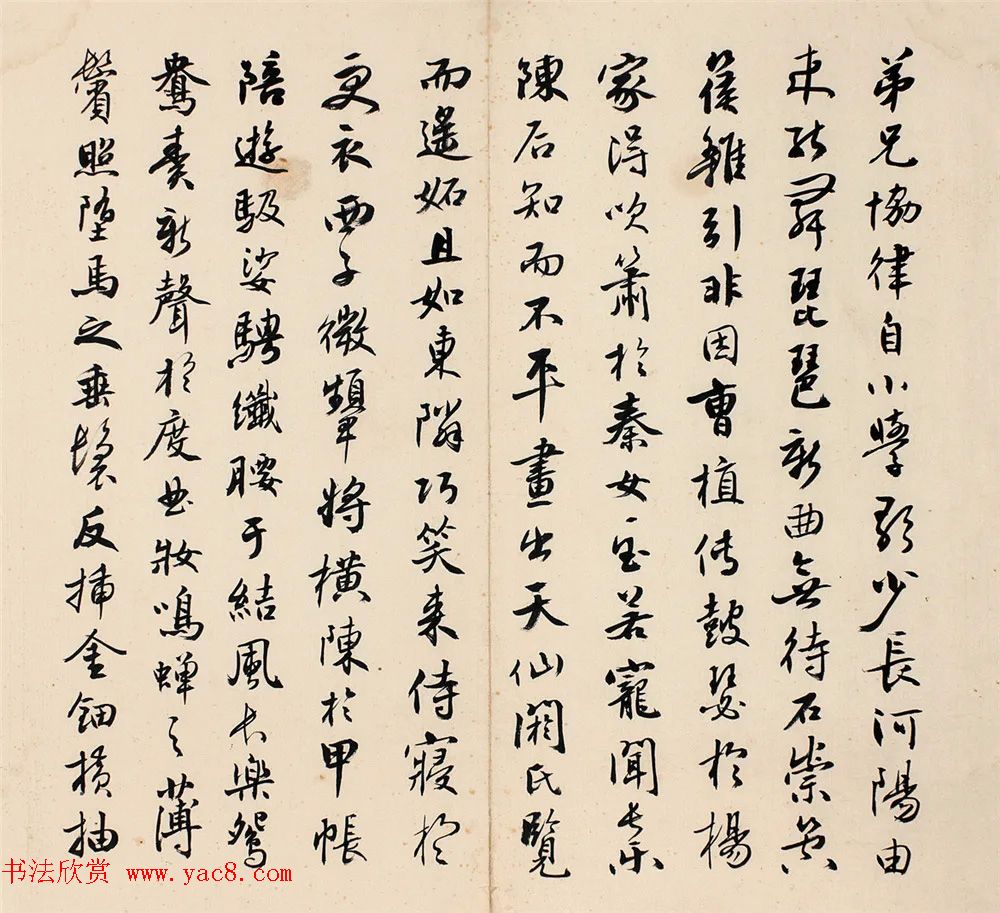 弟兄協律自小學歌少長河陽由
來能舞琵琶新曲無待石崇箜
篌雜引非因曹植傳鼓瑟於楊
家得吹簫於秦女至若寵聞長樂
陳后知而不平畫出天仙閼氏覽
而遥妬且如東隣巧笑来侍寢於
更衣西子微顰将橫陳於甲帳
陪遊馺娑騁纖腰于結風長樂鴛
鴦奏新聲於度曲妝鳴蟬之薄
鬢照墮馬之垂鬟反插金鈿橫抽
书法欣赏 www.yac8.com